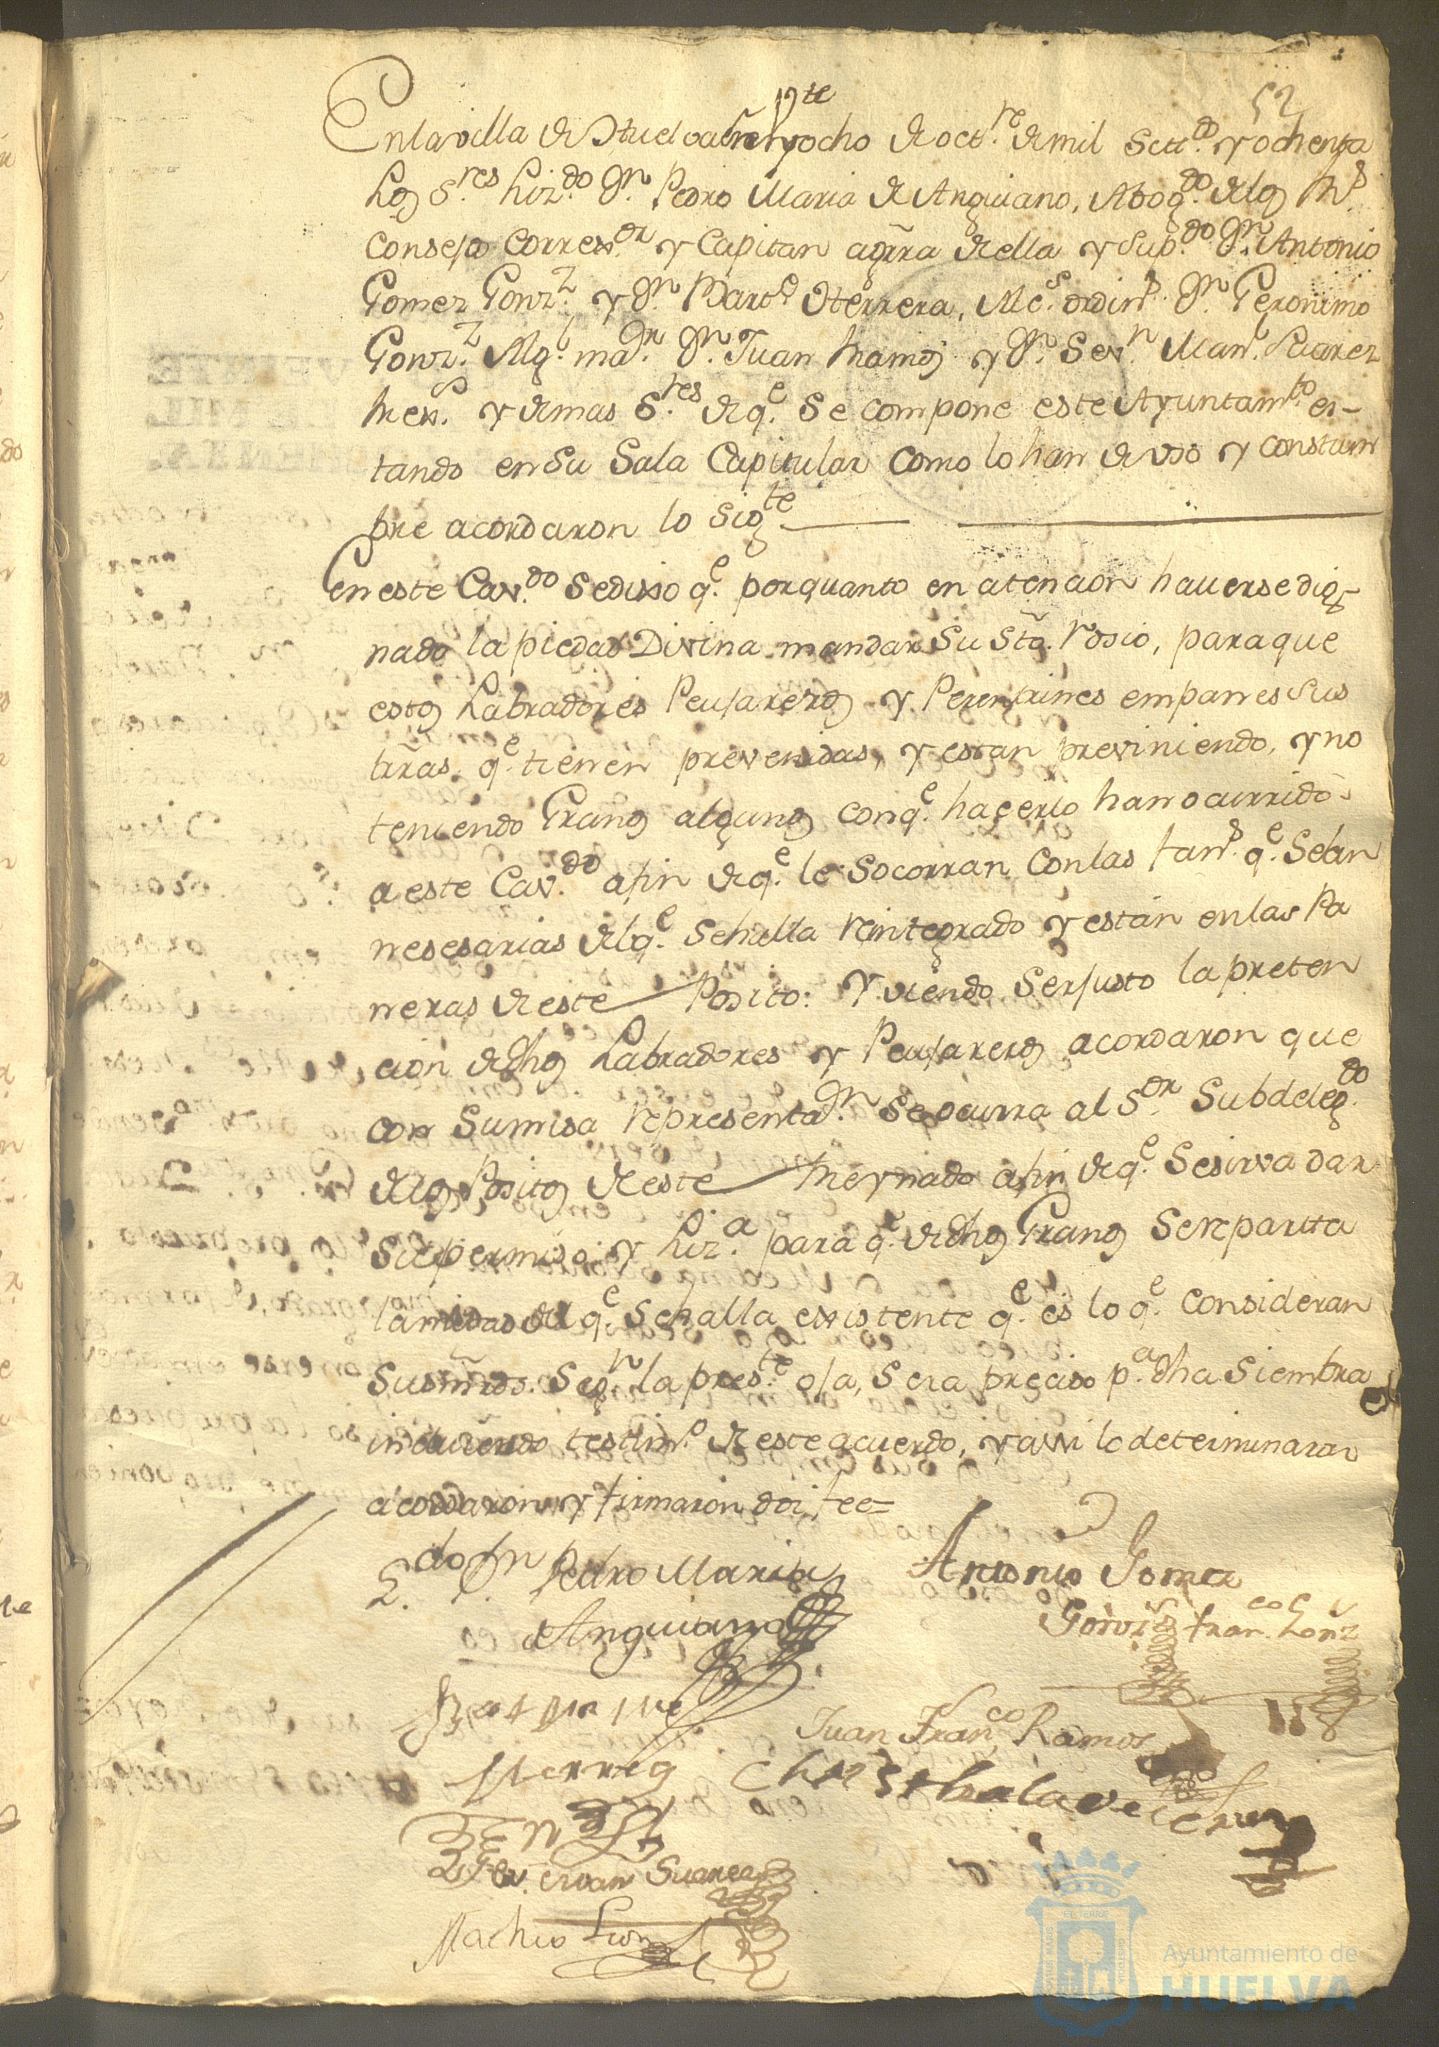 52
En la villa de Huelva en Vte y ocho de octre de mil Settos y ochenta
los Sres Lizdo Dn Pedro Maria de Anguiano, Abogdo de los Rs
Consejos Correxor y Capitan a grra de ella y Supdo Dn Antonio
Gomez Gonzz y Dn Barte Herrera, Alces ordins Dn Geronimo
Gonzz Algl mar Dn Juan Ramos y Dn Sevn Manl Suarez
Rexs y demas Sres de qe se compone este Ayuntamto es-
tando en Su Sala Capitular como lo han de uso y constum
bre acordaron lo Sigte
En este Cavdo se dixo qe por quanto en atencion haverse dig-
nado la piedad Divina mandar Su Sto rosio, para que
estos Labradores Peujareros y Perentrines empanes sus
trras qe tienen prevenidas, y estan previniendo, y no
teniendo Granos algunos con qe hacerlo han ocurrido
a este Cavdo a fin de qe le socorran con las fans qe Sean
nesesarias del qe se halla reintegrado y están en las Pa
neras de este Posito: Y viendo ser justo la preten
cion de dhos Labradores y Peujareros acordaron que
con Sumisa representan se ocurra al Sor Subdelegdo
de los Positos de este Reynado a fin de qe se sirva dar
Su permiso y Liza para qe de dhos Granos se reparta
la mitad del qe se halla existente qe es lo qe consideran
Sus mrds. Segn la preste oja, Sera preciso pa dha Siembra
incluiendo testimo de este acuerdo, y assi lo determinaron
acordaron y firmaron doi fee=
Ldo Dn Pedro Maria
Anguiano
Antonio Gomez
Gonzs
Franco
Juan Franco Ramos
Herrera
Suarez
Ayuntamiento de
HUELVA